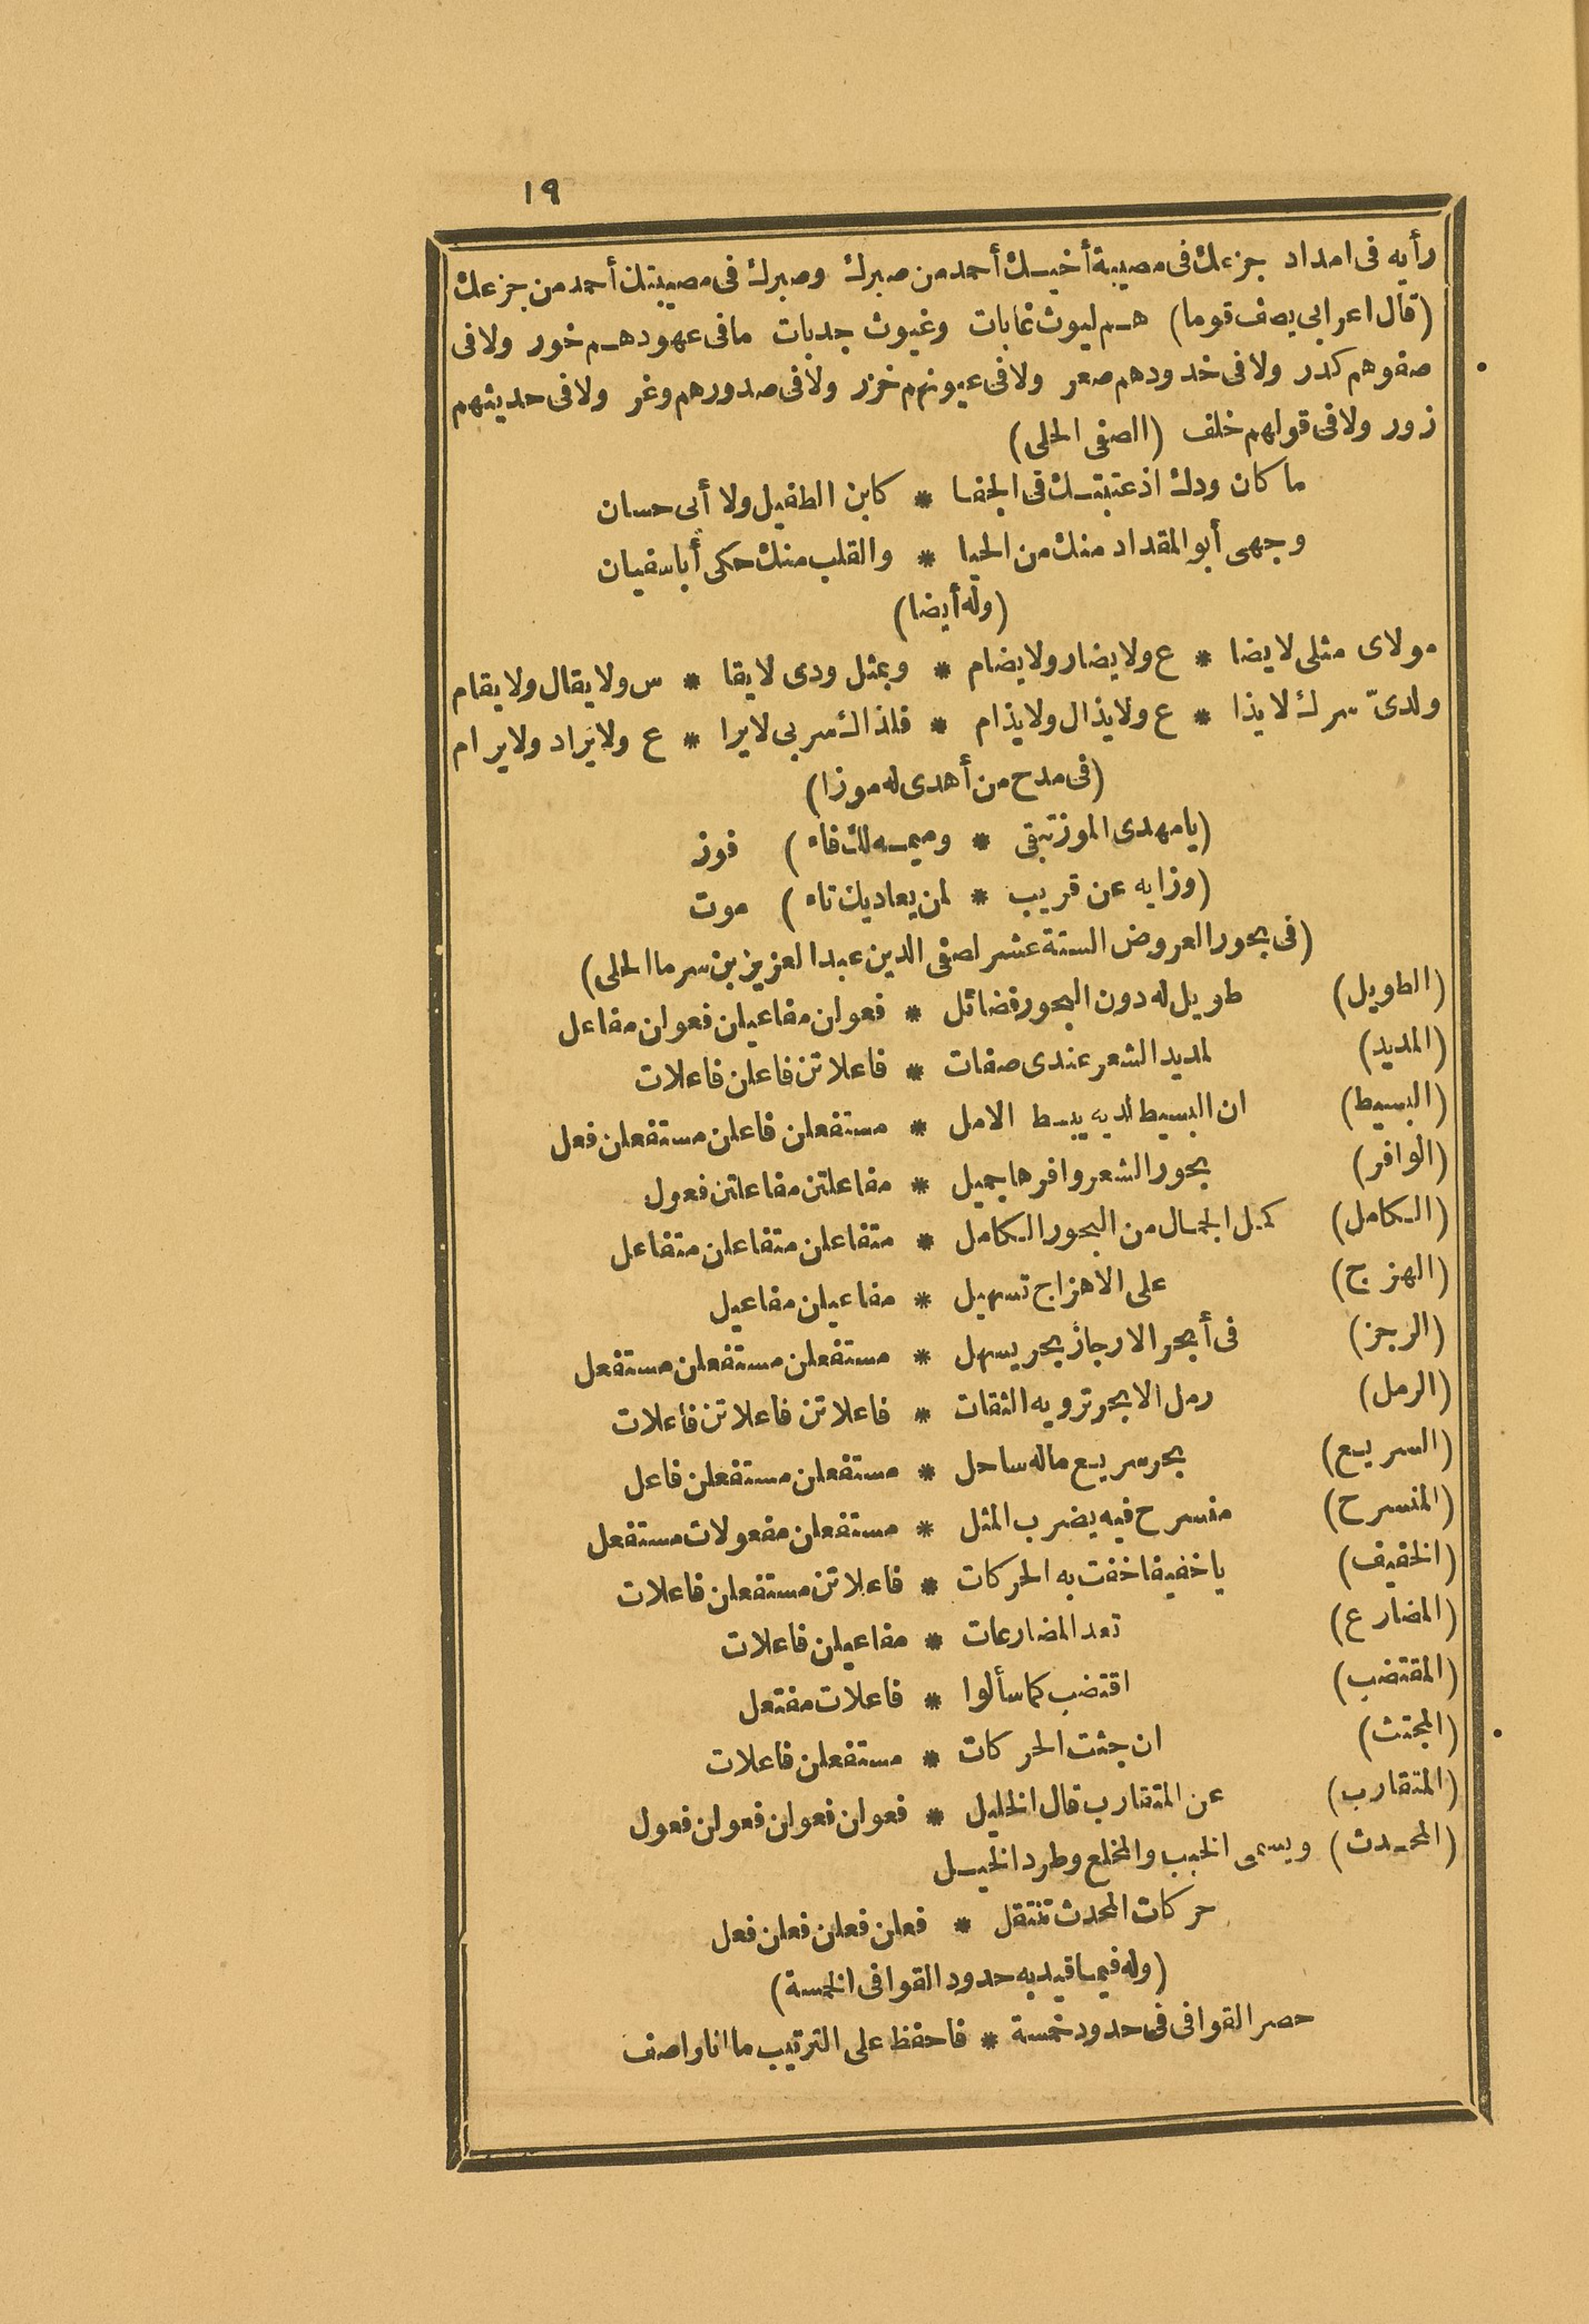 ١٩
رأيه فى امداد جزعك فى مصيبة أخيك أحمد من صبرك وصبرك فى مصيبتك أحمد من جزعك
(قال اعرابى يصف قوما) هم ليوث غابات وغيوث جدبات مافى عهودهم خور ولافى
صفوهم كدر ولافى خدودهم صعر ولافى عيونهم خزر ولافى صدورهم وغر ولافى حديثهم
زور ولافى قولهم خلف (الصفى الحلى)
ما كان ودك اذ عتبتك فى الجفا * كابن الطفيل ولا أبى حسان
وجهى أبو المقداد منك من الحيا * والقلب منك حكى أبا سفيان
(وله أيضا)
مولاى مثلى لايضا * ع ولايضار ولايضام * وبمثل ودى لايقا * س ولايقال ولايقام
ولدىّ سرك لايذا * ع ولايذال ولايذام * فلذاك سربى لايرا * ع ولايراد ولايرام
(فى مدح من أهدى له موزا)
(يامهدى الموز تبقى * وميمه لك فاء) فوز
(وزايه عن قريب * لمن يعاديك تاء) موت
(فى بحور العروض الستة عشر لصفى الدين عبد العزيز بن سرما الحلى)
(الطويل) طويل له دون البحور فضائل * فعولن مفاعيلن فعولن مفاعل
(المديد) لمديد الشعر عندى صفات * فاعلاتن فاعلن فاعلات
(البسيط) ان البسيط لديه يبسط الامل * مستفعلن فاعلن مستفعلن فعل
(الوافر) بحور الشعر وافرها جميل * مفاعلتن مفاعلتن فعول
(الكامل) كمل الجمال من البحور الكامل * متفاعلن متفاعلن متفاعل
(الهزج) على الاهزاج تسهيل * مفاعيلن مفاعيل
(الرجز) فى أبحر الارجاز بحر يسهل * مستفعلن مستفعلن مستفعل
(الرمل) رمل الابحر ترويه الثقات * فاعلاتن فاعلاتن فاعلات
(السريع) بحر سريع ماله ساحل * مستفعلن مستفعلن فاعل
(المنسرح) منسرح فيه يضرب المثل * مستفعلن مفعولات مستفعل
(الخفيف) ياخفيفا خفت به الحركات * فاعلاتن مستفعلن فاعلات
(المضارع) تعد المضارعات * مفاعيلن فاعلات
(المقتضب) اقتضب كما سألوا * فاعلات مفتعل
(المجتث) ان جثت الحركات * مستفعلن فاعلات
(المتقارب) عن المتقارب قال الخليل * فعولن فعولن فعولن فعول
(المحدث) ويسمى الخبب والمخلع وطرد الخيل
حركات المحدث تنتقل * فعلن فعلن فعلن فعل
(وله فيما قيد به حدود القوافى الخمسة)
حصر القوافى فى حدود خمسة * فاحفظ على الترتيب ما انا واصف